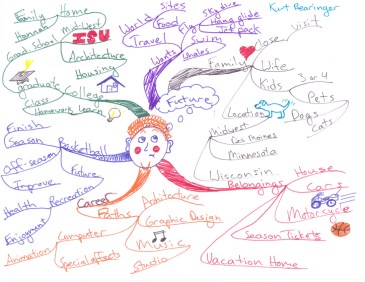 Kurt Bearinger
Family Home
Hannah
Mid-West
Grad. School
ISU
Architecture
Housing
graduate
College
Class
Homework Learn
World
Sites
Food
Travel
Fly
Sky dive
Hang glide
Jet pack
Swim
Whales
Works
Future
Family
Close
Visit
Wife
Kids
3 or 4
Pets
Dogs
Cats
Location
Midwest
Des Moines
Minnesota
Wisconsin
Belongings
House
Cars
Motorcycle
Season Tickets
Vacation Home
Finish
Season
Basketball
Off-season
Future
Improve
Health
Recreation
Enjoyment
Career
Paths
Achitecture
Graphic Design
Computer
Animation
Special effects
Music
Studio